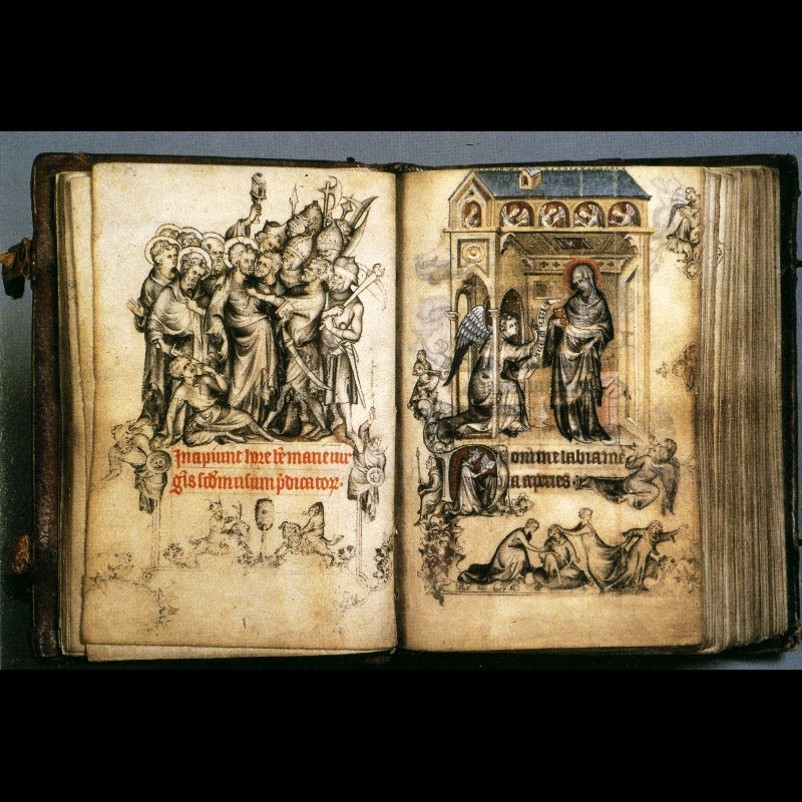 Incipiunt hore be marie vir
gis scdm usum pdicator.
Domine labia me
a aperies